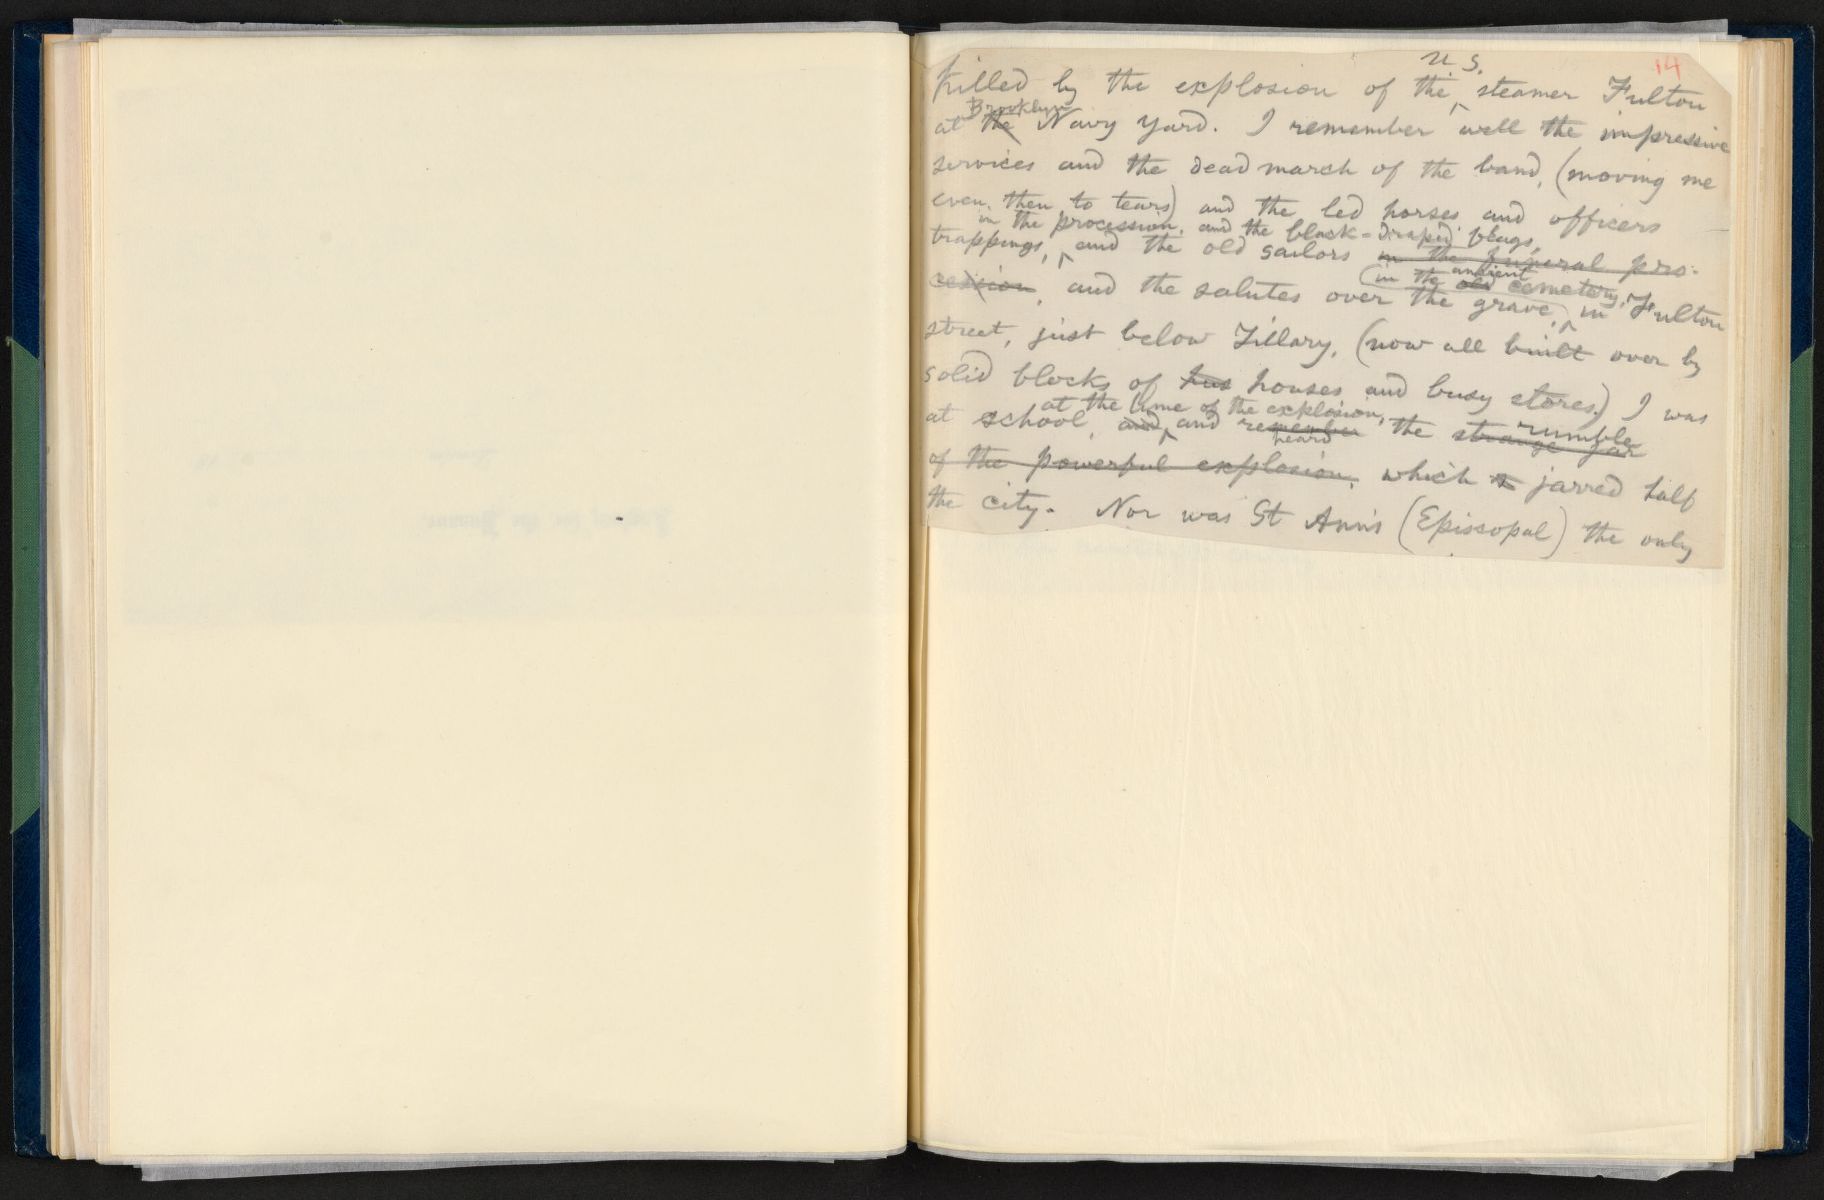 14
U S.
killed by the explosion of the steamer Fulton
Brooklyn
at the Navy Yard. I remember well the impressive
services and the dead march of the band, (moving me
even then to tears) and the led horses and officers
in the procession, and the black-draped flags,
trappings, and the old sailors in the funeral pro-
cession, and the salutes over the grave, in Fulton
(in the old ancient cemetery,
street, just below Tillary, (now all built over by
solid blocks of hus houses and busy stores.) I was
at the time of the explosion,
at school, and, and remember the strange jar
heard
rumble
of the powerful explosion, which jarred half
the city. Nor was St Ann's (Episcopal) the only